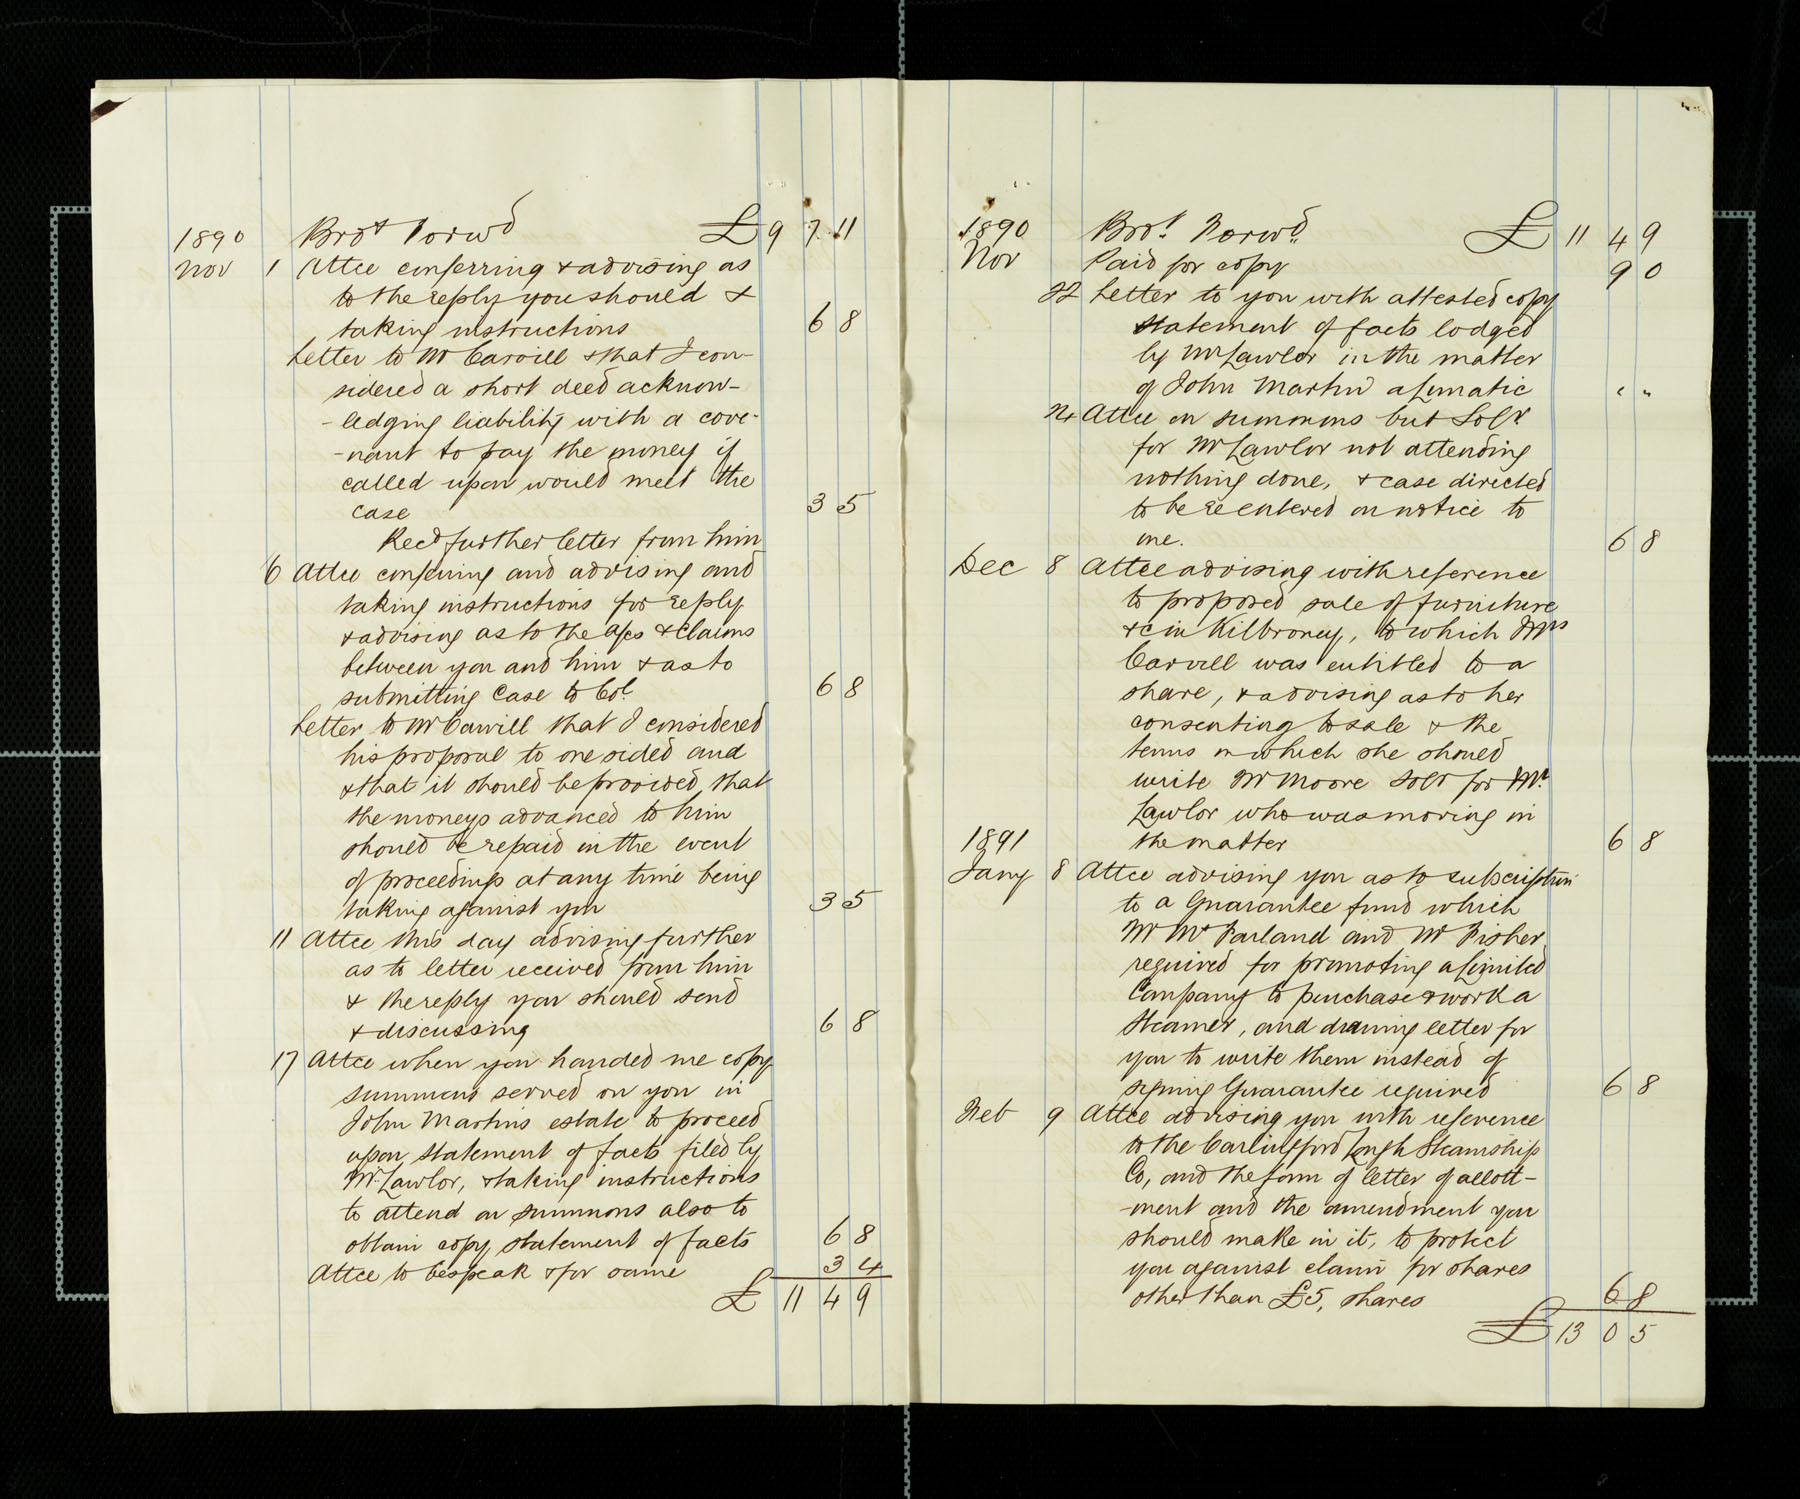 1890 Brot Forwd £ 9 7 11
Nov 1 Attce conferring & advising as
to the reply you should &
taking instructions 6 8
Letter to Mr Carvill that I con-
sidered a short deed acknow-
-ledging liability with a cove-
-nant to pay the money if
called upon would meet the
case 3 5
Recd further letter from him
6 Attce conferring and advising and
taking instructions for reply
& advising as to the a/cs & claims
between you and him & as to
submitting Case to Col. 6 8
Letter to Mr Carvill that I considered
his proposal to one sided and
& that it should be provided, that
the moneys advanced to him
should be repaid in the event
of proceedings at any time being
taking against you 3 5
11 Attce this day advising further
as to letter received from him
& the reply you should send
& discussing 6 8
17 Attce when you handed me copy
summons served on you in
John Martins estate to proceed
upon statement of facts filed by
Mr Lawlor, & taking instructions
to attend on summons also to
obtain copy statement of facts 6 8
Attce to bespeak & for same 3 4
£ 11 4 9
1890 Brot. Forwd. £ 11 4 9
Nov Paid for copy 9 0
22 Letter to you with attested copy
statement of facts lodged
by Mr Lawlor in the matter
of John Martin a lunatic " "
24 Attce on summons but Solr
for Mr Lawlor not attending
nothing done, & case directed
to be re entered on notice to
me. 6 8
Dec 8 Attce advising with reference
to proposed sale of furniture
&c in Kilbroney, to which Mrs
Carvill was entitled to a
share, & advising as to her
consenting to sale & the
terms on which she should
write Mr Moore Solr for Mr.
Lawlor who was moving in
1891 the matter 6 8
Jany 8 Attce advising you as to subscription
to a Guarantee fund which
Mr McFarland and Mr Fisher
required for promoting a limited
Company to purchase & work a
Steamer, and drawing letter for
you to write them instead of
signing Guarantee required 6 8
Feb 9 Attce advising you with reference
to the Carlingford Lough Steamship
Co, and the form of letter of allott-
-ment and the amendment you
should make in it, to protect
you against claim for shares
other than £5, shares 6 8
£ 13 0 5